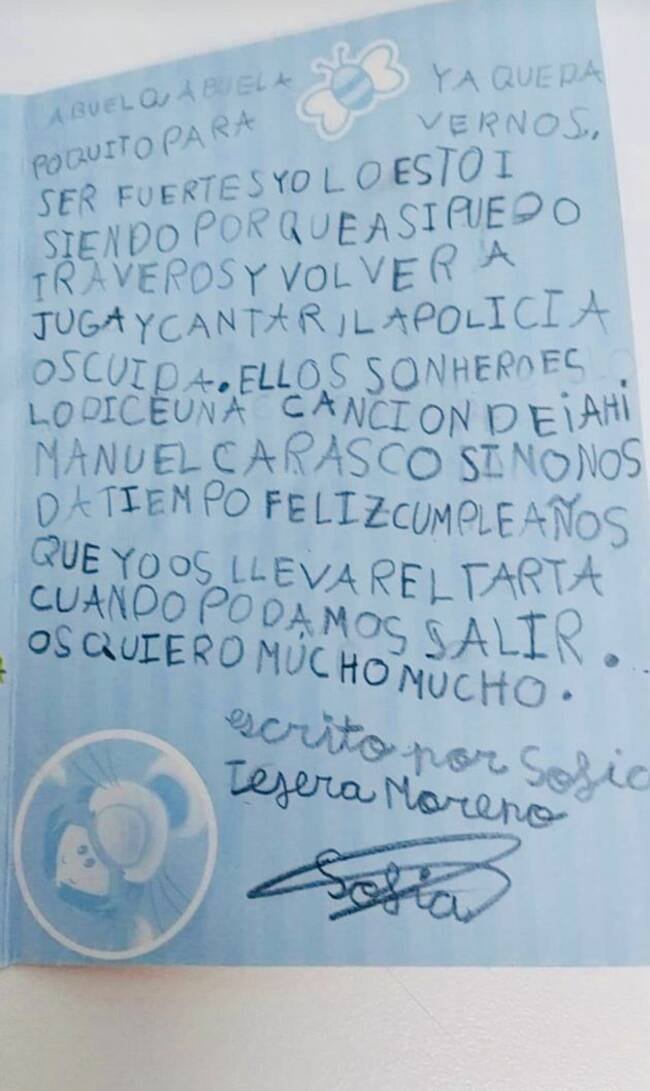 ABUELO, ABUELA YA QUEDA
POQUITO PARA VERNOS..
SER FUERTES YO LO ESTOI
SIENDO PORQUE ASI PUEDO
IR A VEROS Y VOLVER A
JUGA Y CANTAR, LA POLICIA
OS CUIDA. ELLOS SON HEROES
LO DICE UNA CANCION DE ¡AHI
MANUEL CARASCO SI NO NOS
DA TIEMPO FELIZ CUMPLEAÑOS
QUE YO OS LLEVARE L TARTA
CUANDO PODAMOS SALIR.
OS QUIERO MUCHO MUCHO.
escrito por Sofia
Tejera Moreno
Sofia